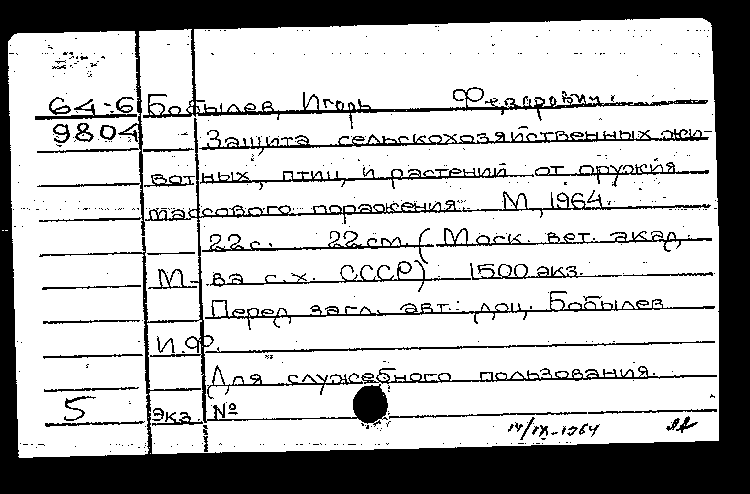 64-6 Бобылев, Игорь Федорович.
9804 Защита сельскохозяйственных жи-
вотных, птиц и растений от оружия
массового поражения. М., 1964.
22 с. 22 см. (Моск. вет. акад.
М-ва с.х. СССР) 1500 экз.
Перед загл. авт.: доц. Бобылев
И.Ф.
Для служебного пользования.
5 экз №
14/IX-1964